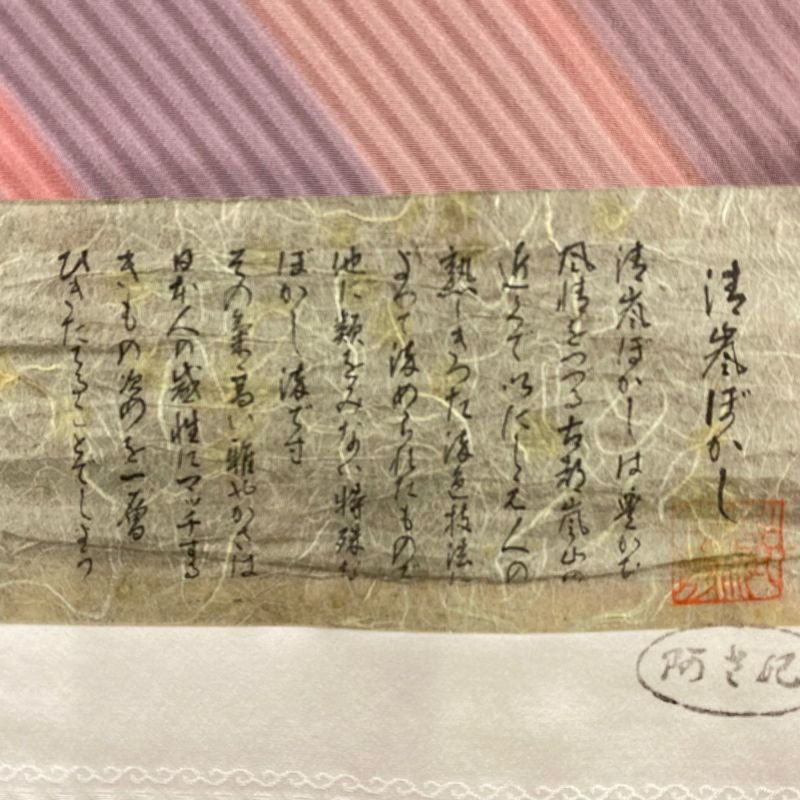 清嵐ぼかし
清嵐ぼかしは豊かな
風情をつづる古都嵐山の
近くで以にしえ人の
熟しきった染色技法に
よって染められたもので
他に類をみない特殊な
ぼかし染です
その気高い雅やかさは
日本人の感性にマッチする
きもの姿を一層
ひきたてることでしょう
阿